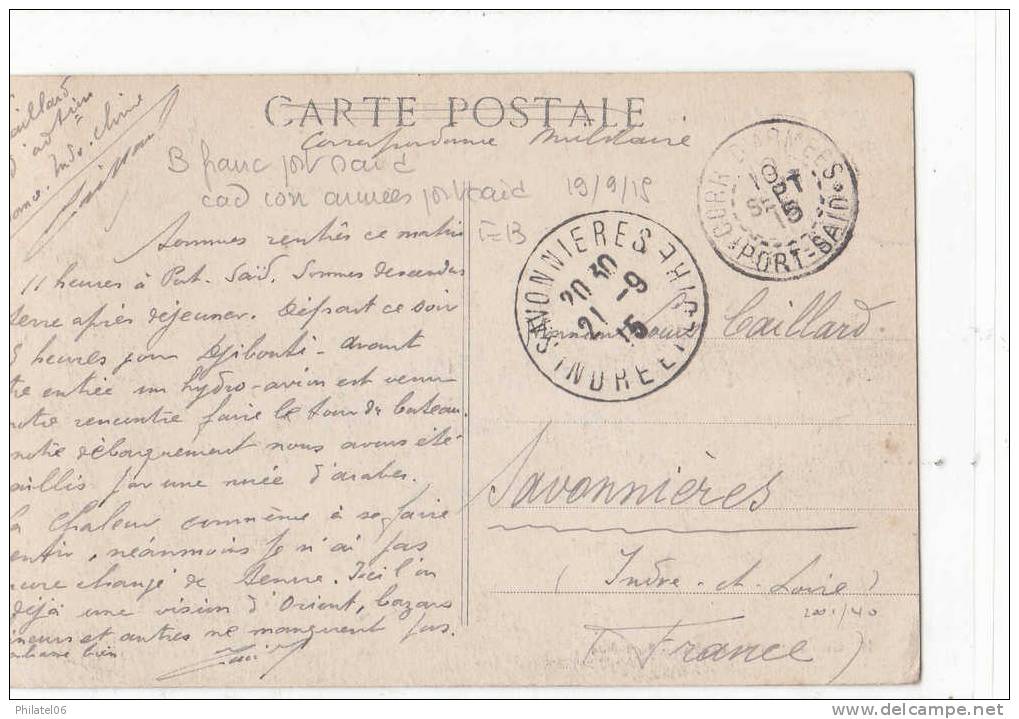 CARTE POSTALE
Correspondance Militaire
Caillard
Indo-Chine
B franc port said
cad corr armées port said 19/9/15
I=B
CORR. D'ARMEES
PORT-SAID
SAVONNIERES
20 30
21 -9
15
INDRE ET LOIRE
Sommes rentrés ce matin
11 heures à Port-Saïd. Sommes descendus
terre après déjeuner. Départ ce soir
heures pour Djibouti - avant
tre entrée un hydro-avion est venu
notre rencontre faire le tour du bateau.
notre débarquement nous avons été
aillis par une nuée d'arabes.
la chaleur commence à se faire
entir, néanmoins je n'ai pas
ncore changé de tenue. Ici l'on
déjà une vision d'Orient, bazars
neurs et autres ne manquent pas.
bien
Caillard.
Savonnières
(Indre-et-Loire)
(France)
Philatel06